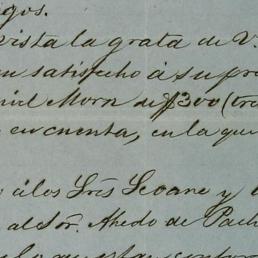 igos.
vista la grata de V.
n satisfecho á su pro
niel Mora de $300 (tre
en cuenta, en la que
á los Srés Seoane y
al Sor. Ahedo de Pach